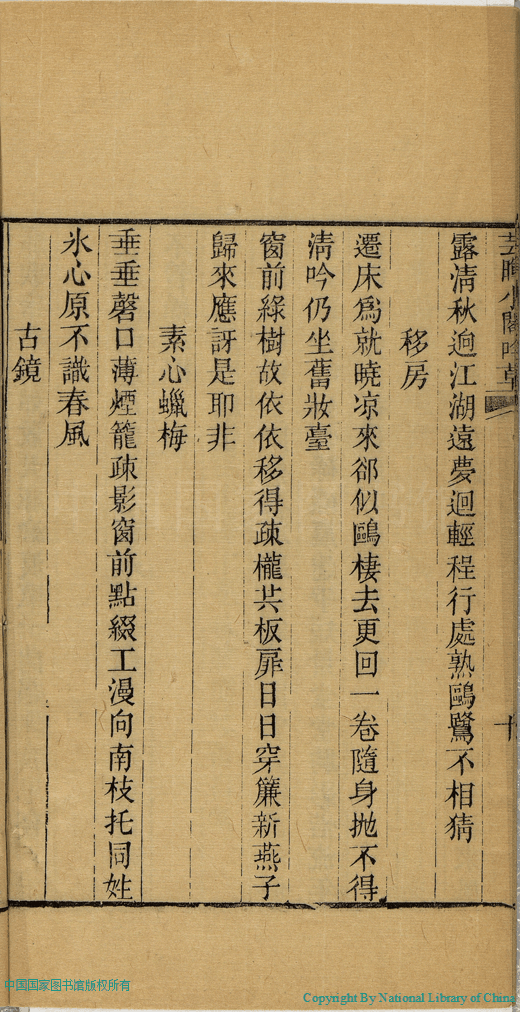 芸暉小閣吟草
十
露清秋迥江湖遠夢迴輕程行處熟鷗鷺不相猜
移房
遷床爲就曉凉來卻似鷗棲去更回一卷隨身拋不得
淸吟仍坐舊妝臺
窗前綠樹故依依移得疎櫳共板扉日日穿簾新燕子
歸來應訝是耶非
素心蠟梅
垂垂磬口薄煙籠疎影窗前點綴工漫向南枝托同姓
氷心原不識春風
古鏡
中国国家图书馆版权所有
Copyright By National Library of China